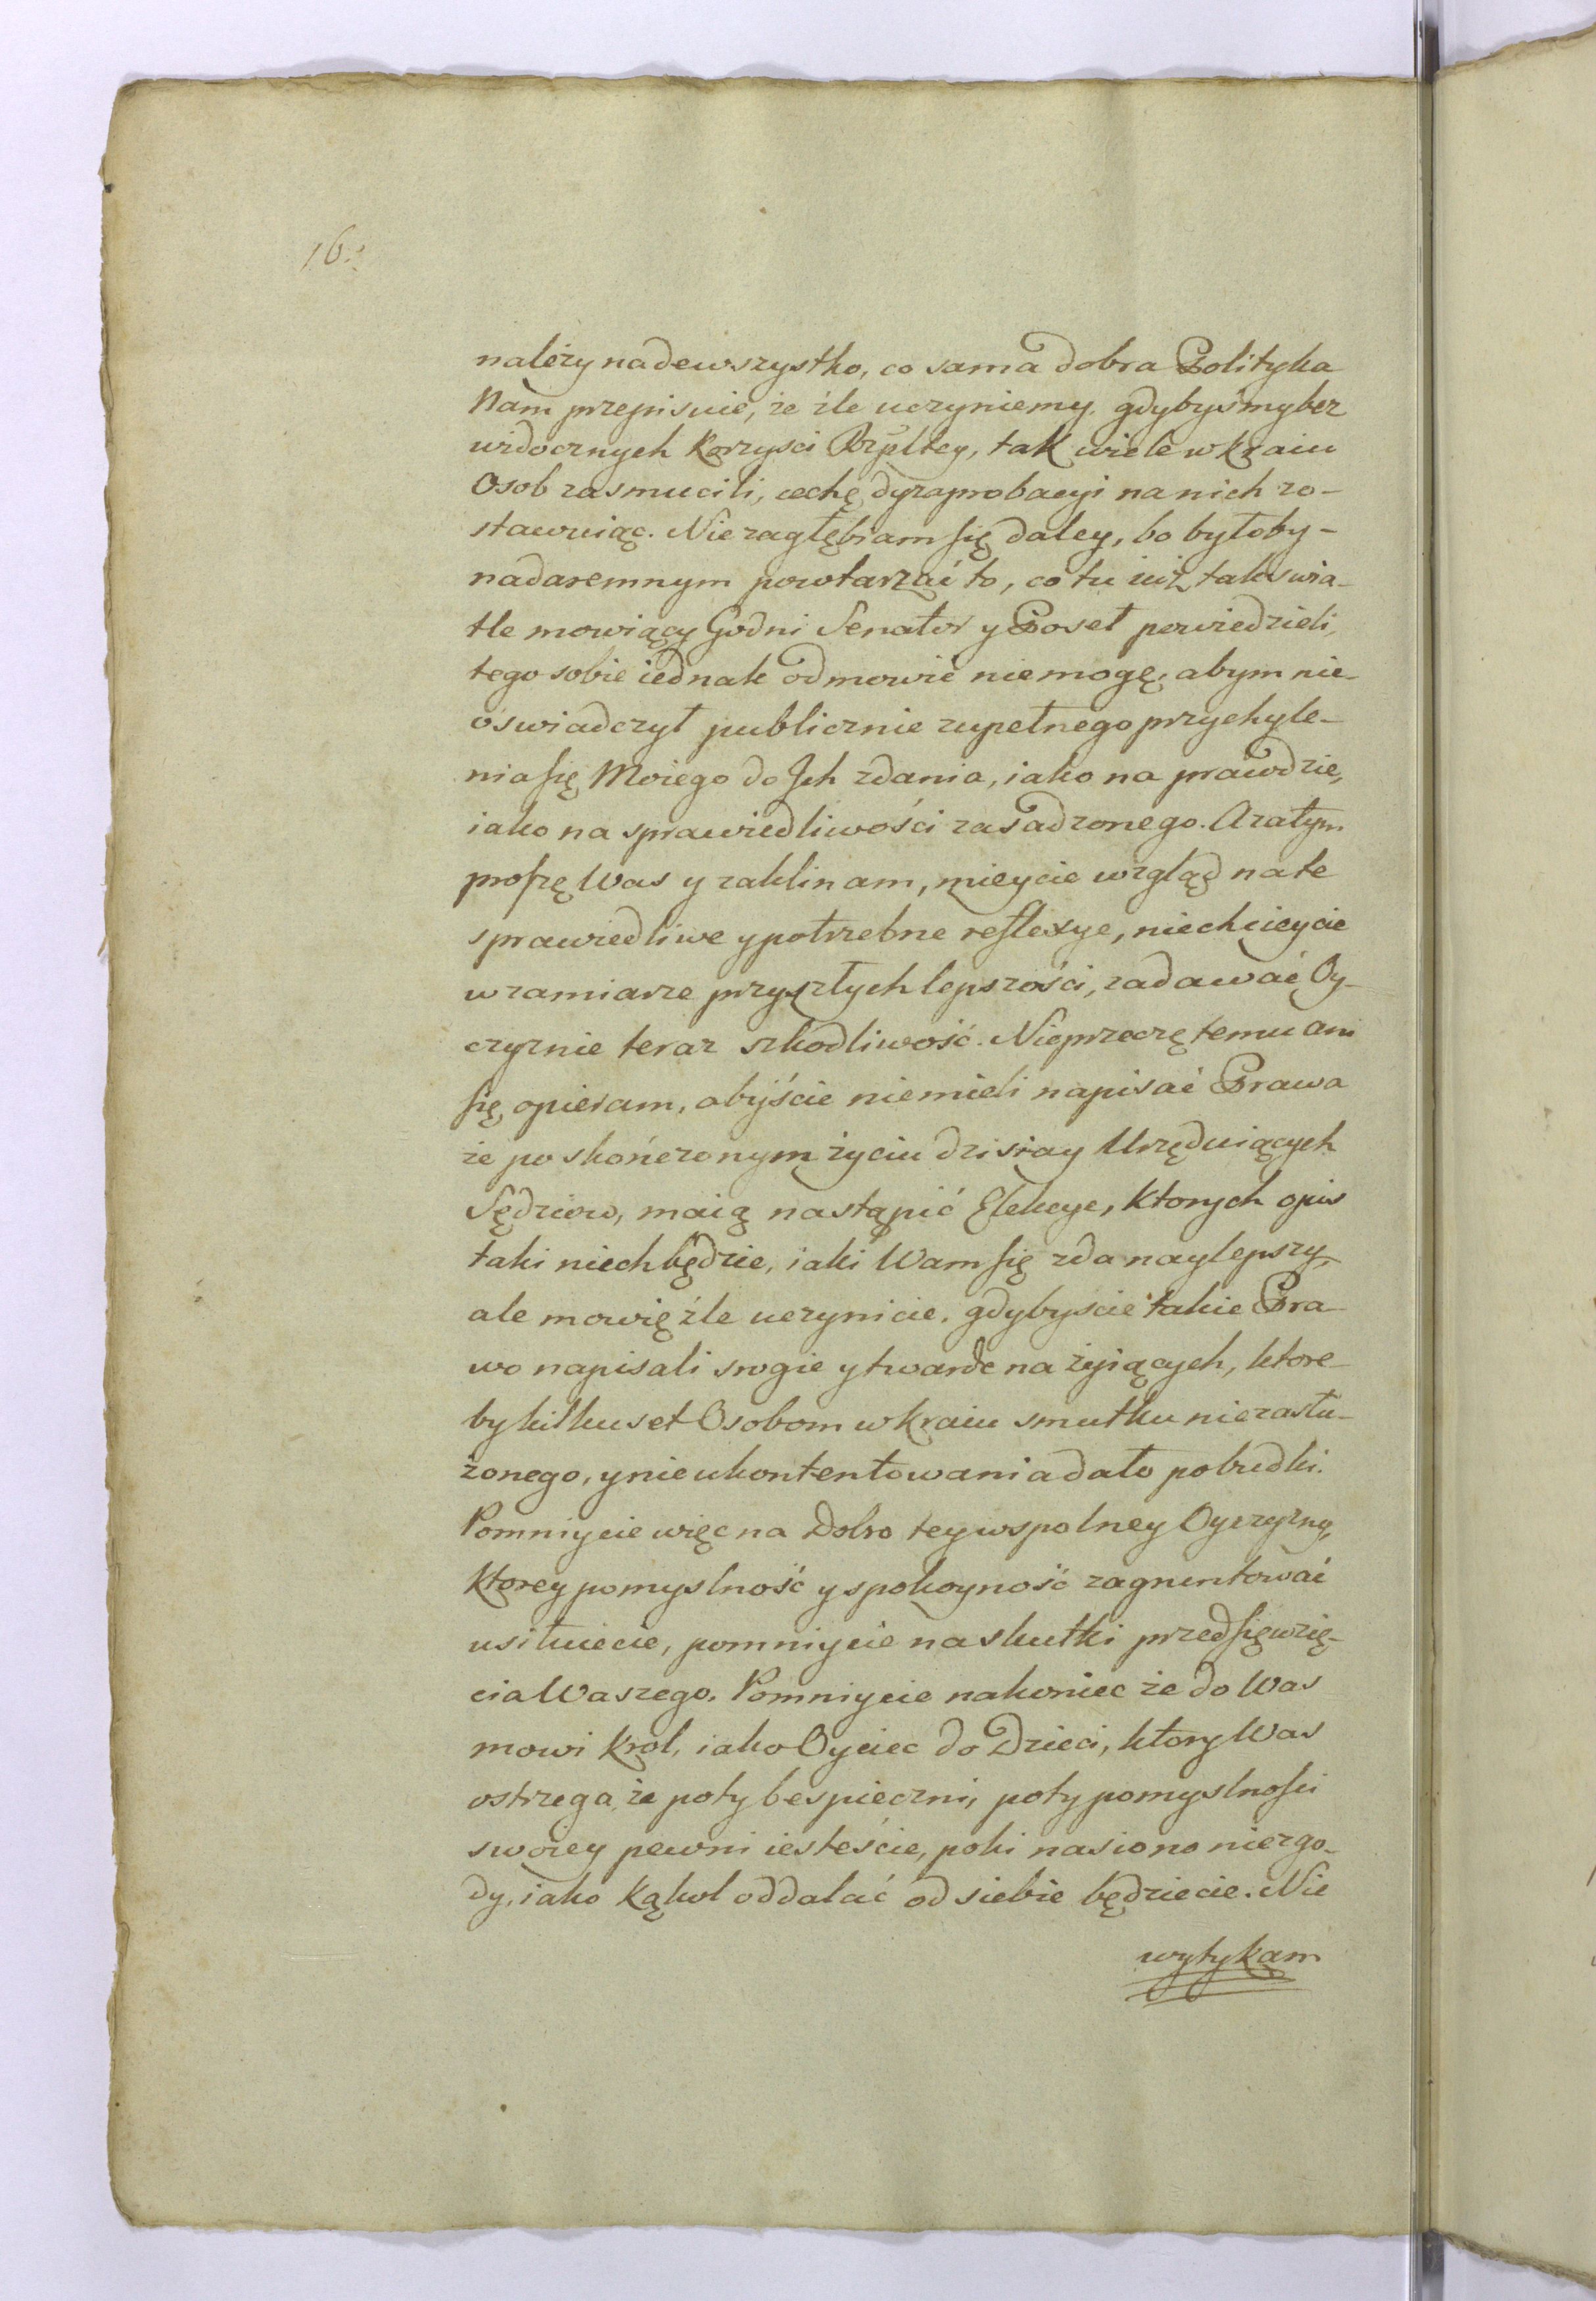 16.
należy nadewszystko, co sama dobra Polityka
Nam przepisuie, że źle uczyniemy, gdybysmy bez
widocznych Korzysci Rzpltey, tak wiele w kraiu
Osob zasmucili, cechę dyzaprobacyi na nich zo-
stawuiąc. Nie zagłębiam się daley, bo byłoby-
nadaremnym powtarzać to, co tu iuż tak swia-
tle mowiący Godni Senator y Poseł powiedzieli,
tego sobie iednak odmowić niemogę, abym nie-
oświadczył publicznie zupełnego przychyle-
nia się Moiego do Ich zdania, iako na prawdzie,
iako na sprawiedliwości zasadzonego. A zatym
proszę Was y zaklinam, mieycie wzgląd na te
sprawiedliwe y potrzebne reflexye, niechcieycie
w zamiarze przyszłych lepszości, zadawać Oy-
czyznie teraz szkodliwość. Nieprzeczę temu ani
się opieram, abyście niemieli napisać Prawa
że po skończonym życiu dzisiay Urzęduiących
Sędziow, maią nastąpić Elekcye, Ktorych opis
taki niech będzie, iaki Wam się zda naylepszy,
ale mowię źle uczynicie, gdybyscie takie Pra-
wo napisali srogie y twarde na żyiących, ktore-
by kilkuset Osobom w kraiu smutku niezasłu-
żonego, y nieukontentowania dało pobudki.
Pomniycie więc na Dobro tey wspolney Oyczyzny,
Ktorey pomyslność y spokoyność zagruntować
usiłuiecie, pomniycie na skutki przedsięwzię-
cia Waszego. Pomniycie nakoniec że do Was
mowi Krol, iako Oyciec do Dzieci, ktory Was
ostrzega że poty bespieczni, poty pomyslności
swoiey pewni iesteście, poki nasiono niezgo-
dy, iako Kąkol oddalać od siebie będziecie. Nie
wytykam